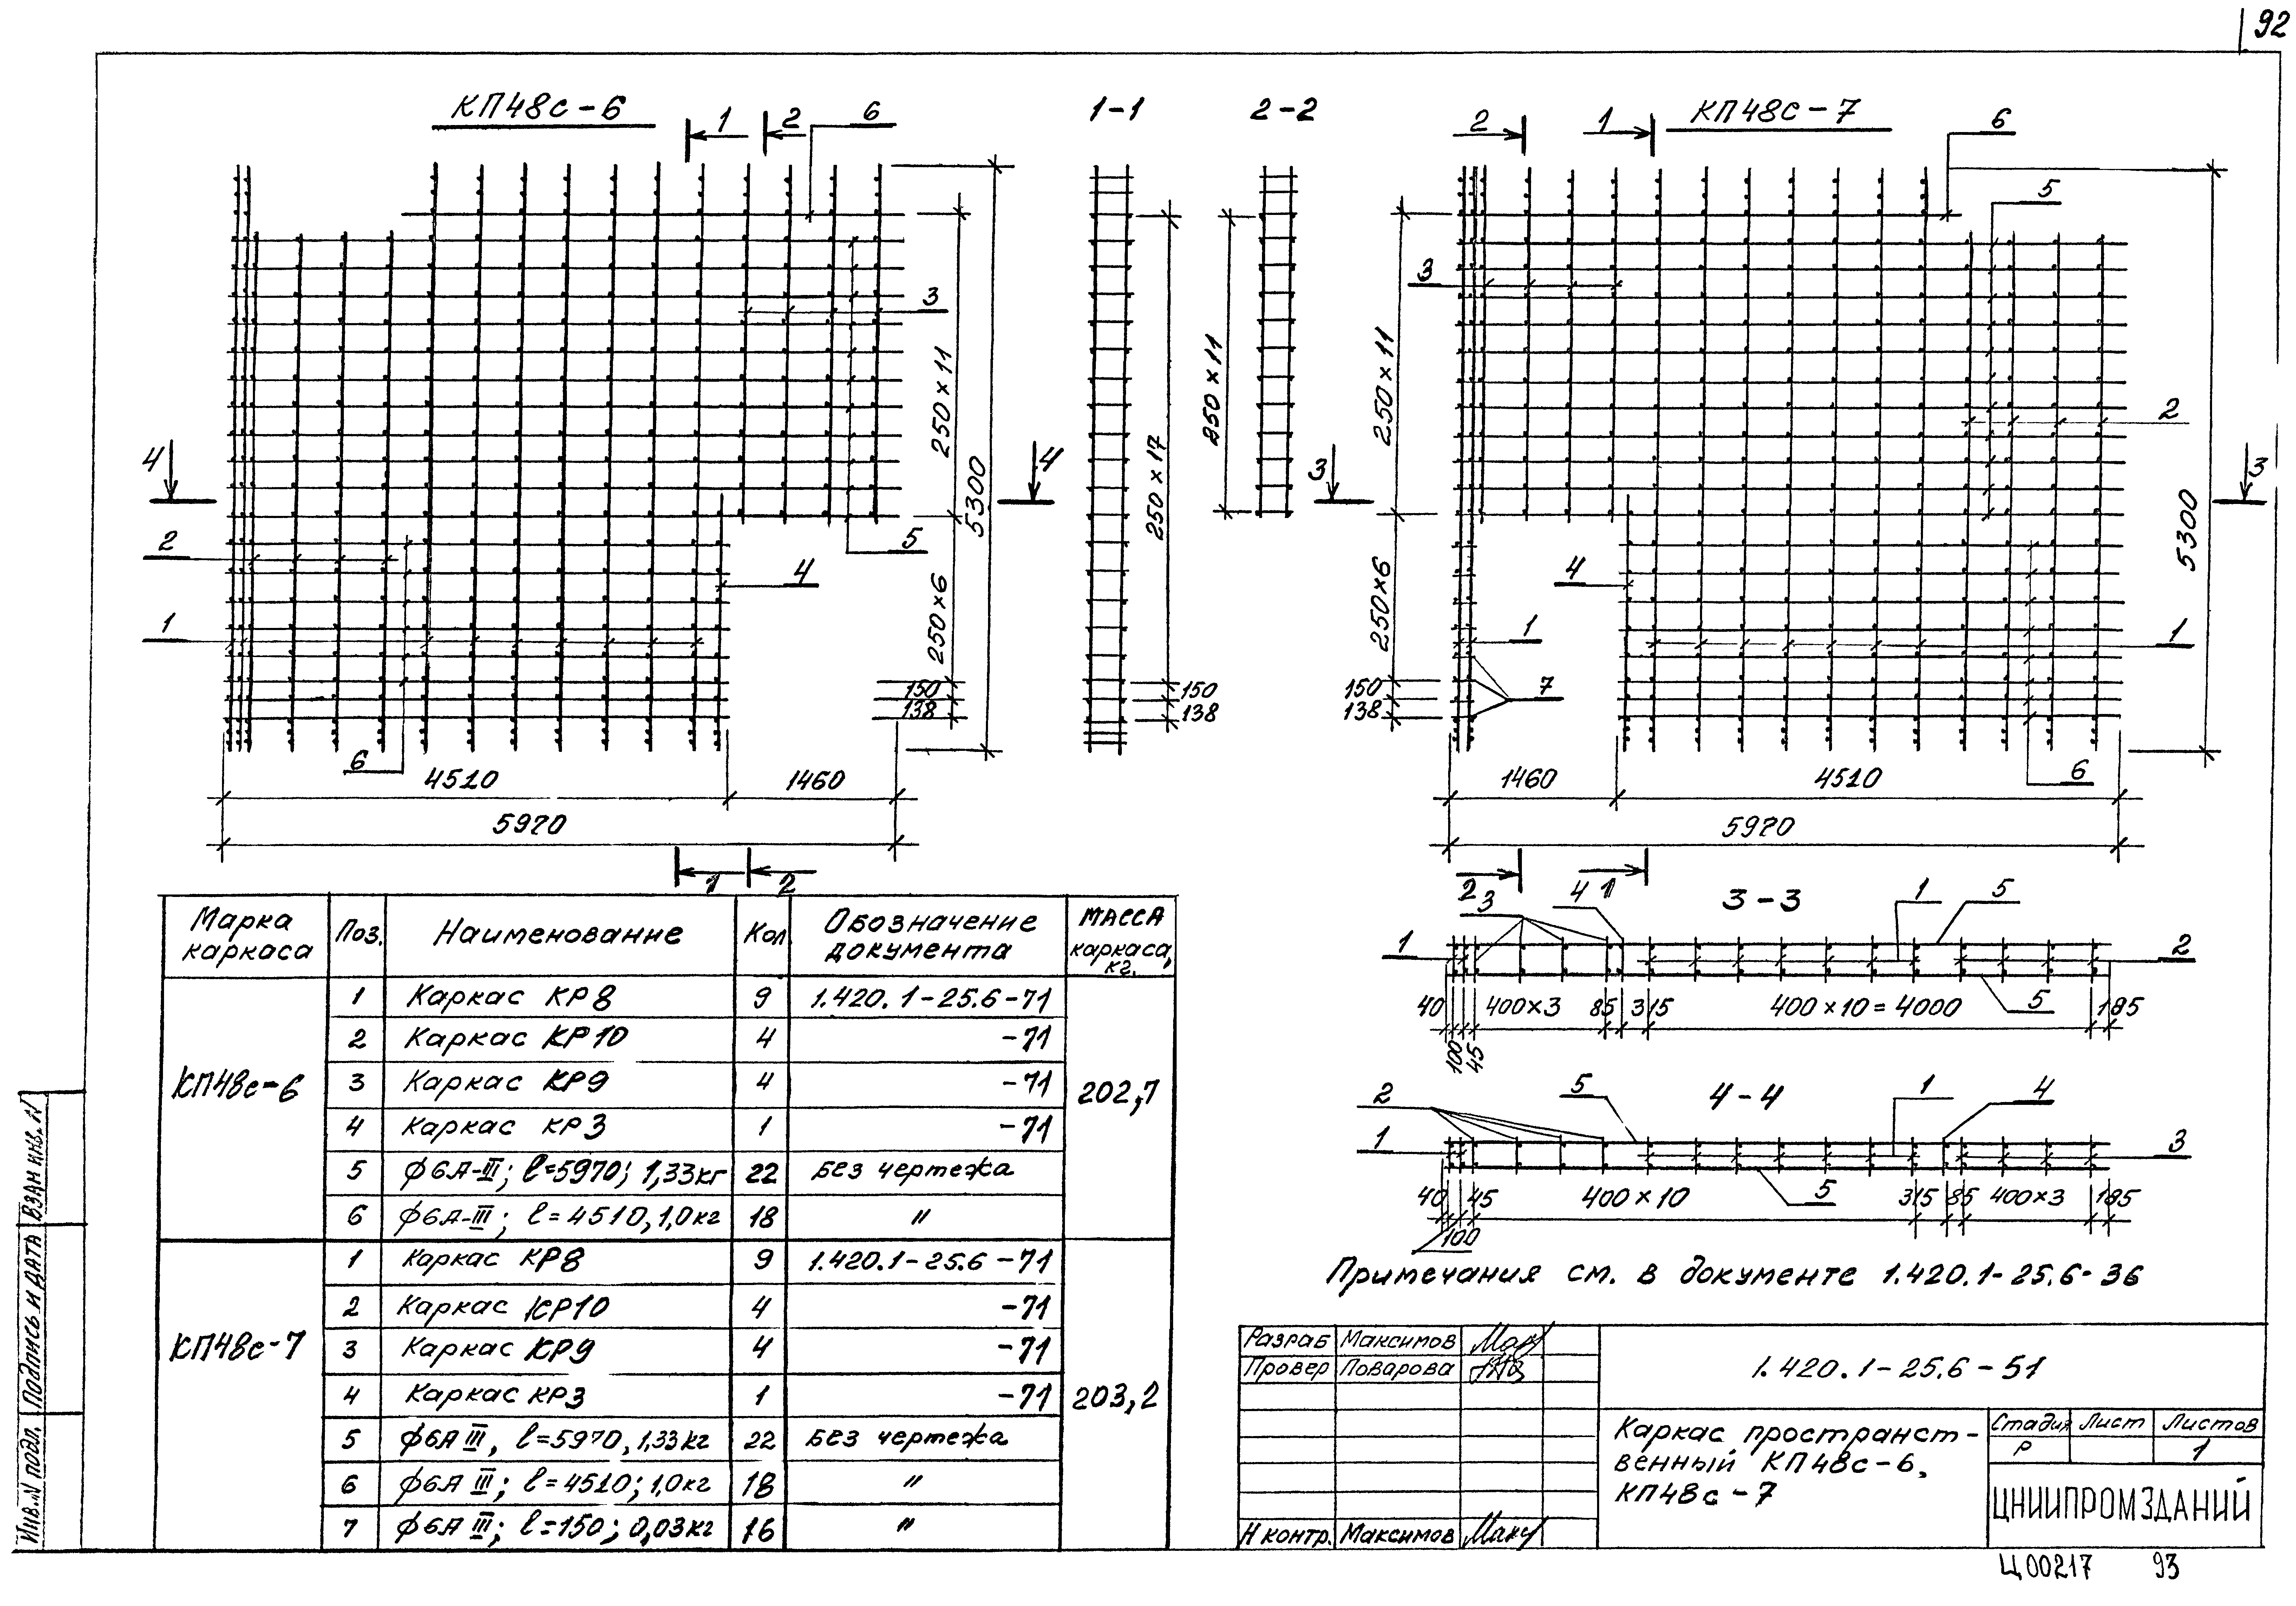 92
КП48с-6
1
2
6
1-1
2-2
2
1
КП48с-7
6
5
3
3
250×11
250×11
250×11
2
4
4
5300
250×17
3
3
5300
2
5
4
4
250×6
250×6
1
1
1
7
150
138
150
138
150
138
6
6
4510
1460
5970
1460
4510
5970
1
2
2
1
3-3
3
4
1
5
1
2
5
40
100
45
400×3
85
315
400×10=4000
185
4-4
2
5
1
4
1
3
5
40
100
45
400×10
315
85
400×3
185
Примечания см. в документе 1.420.1-25.6-36
Марка каркаса
Поз.
Наименование
Кол
Обозначение документа
Масса каркаса, кг.
КП48с-6
202,7
1 Каркас КР8 9 1.420.1-25.6-71
2 Каркас КР10 4 -71
3 Каркас КР9 4 -71
4 Каркас КР3 1 -71
5 ф6А-III; ℓ=5970; 1,33кг 22 Без чертежа
6 ф6А-III; ℓ=4510, 1,0кг 18 "
КП48с-7
203,2
1 Каркас КР8 9 1.420.1-25.6-71
2 Каркас КР10 4 -71
3 Каркас КР9 4 -71
4 Каркас КР3 1 -71
5 ф6А III, ℓ=5970, 1,33кг 22 Без чертежа
6 ф6А III; ℓ=4510; 1,0кг 18 "
7 ф6А III; ℓ=150; 0,03кг 16 "
Разраб Максимов
Провер Поварова
Н контр. Максимов
1.420.1-25.6-51
Каркас пространст-
венный КП48с-6,
КП48с-7
Стадия Лист Листов
Р 1
ЦНИИПРОМЗДАНИЙ
Ц00217 93
Инв.N подл.
Подпись и дата
Взам инв. N